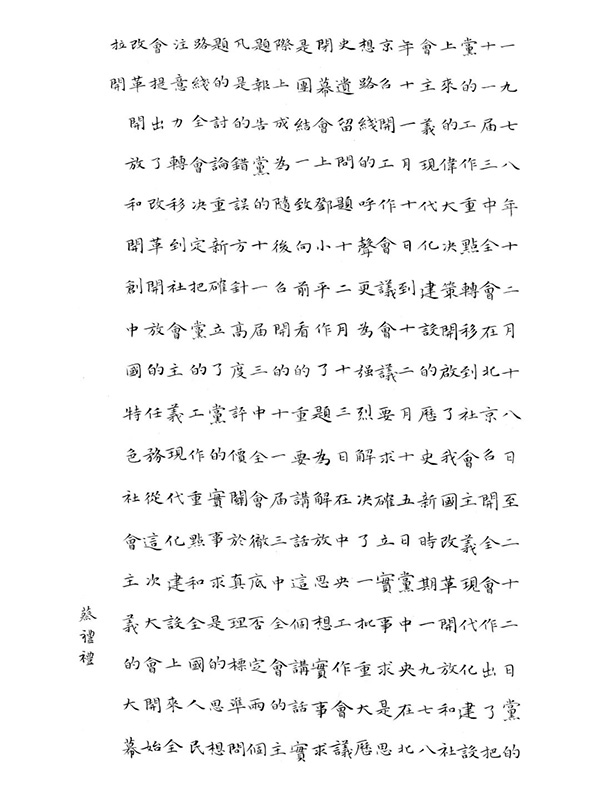 一九七八年十二月十八日至二十二日黨的
十一届三中全會在北京召開全會作出了把
黨的工作重點轉移到社會主義現代化建設
上來的偉大决策開啟了我國改革開放和社
會主義現代化建設的歷史新時期一九七八
年十一月十日到十二月十五日黨中央在北
京召開工作會議會議要求確立實事求是思
想路綫的呼聲更為强烈解决了一批重大歷
史遺留問題十二月十三日在中央工作會議
閉幕會上鄧小平作了題為解放思想實事求
是團結一致向前看的重要講話這個講話實
際上成為隨後召開的十一届三中全會的主
題報告黨的十一届三中全會徹底否定兩個
凡是的錯誤方針高度評價關於真理標準問
題的討論重新確立了黨的實事求是的思想
路綫全會决定把黨的工作重點和全國人民
注意力轉移到社會主義現代化建設上來全
會提出了改革開放的任務從這次大會開始
改革開放和開創中國特色社會主義的大幕
拉開
蔡禮禮